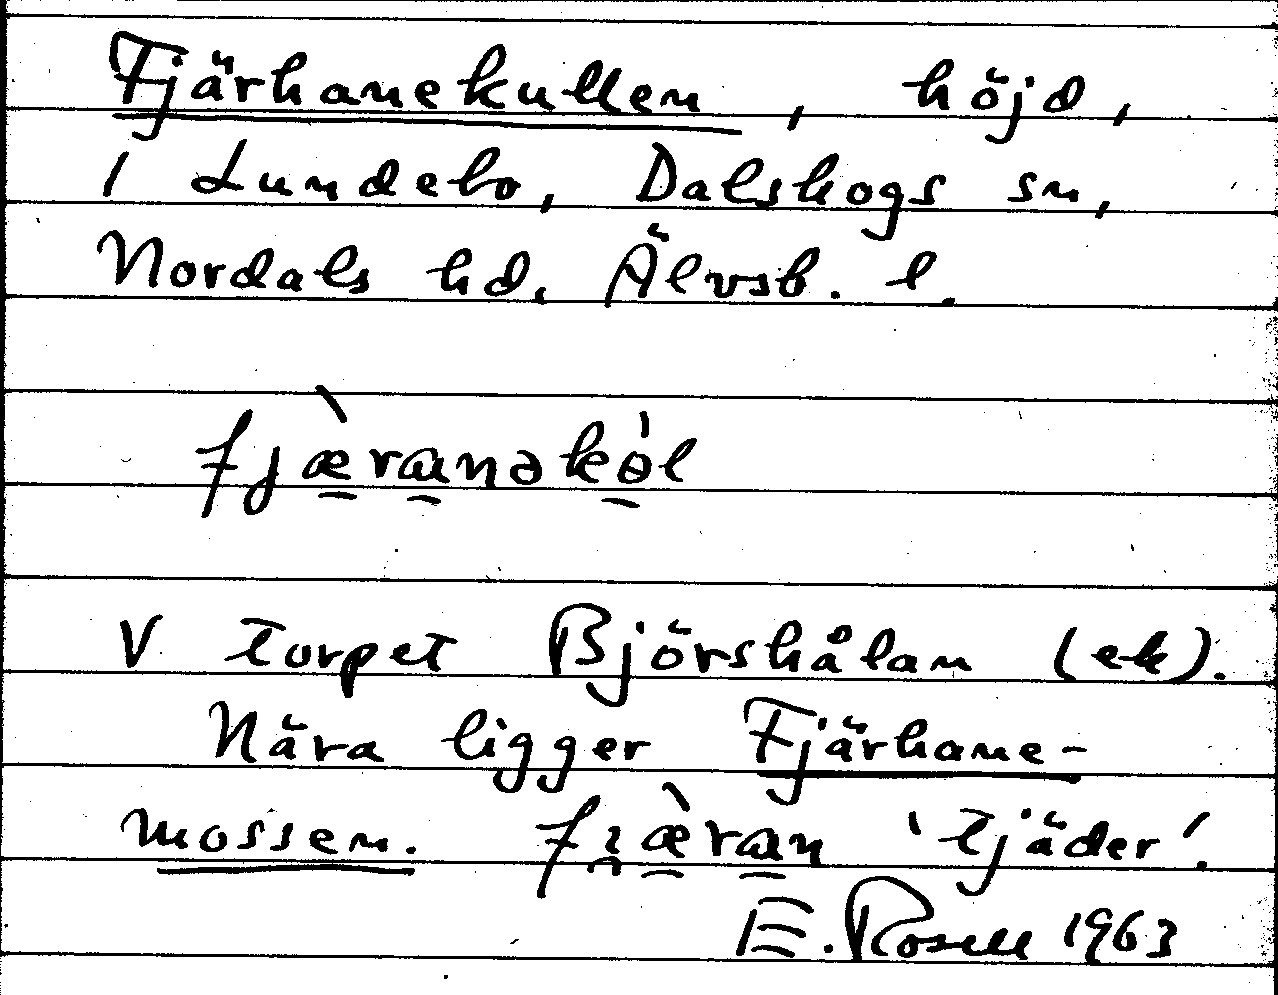 Fjärhanekullen, höjd,
i Lundebo, Dalskogs sn,
Nordals hd. Älvsb. l.
fjæ̀ranəkɵ́l
V torpet Björshålan (ek).
Nära ligger Fjärhane-
mossen. fjæ̀ran 'tjäder'.
E. Rosell 1963